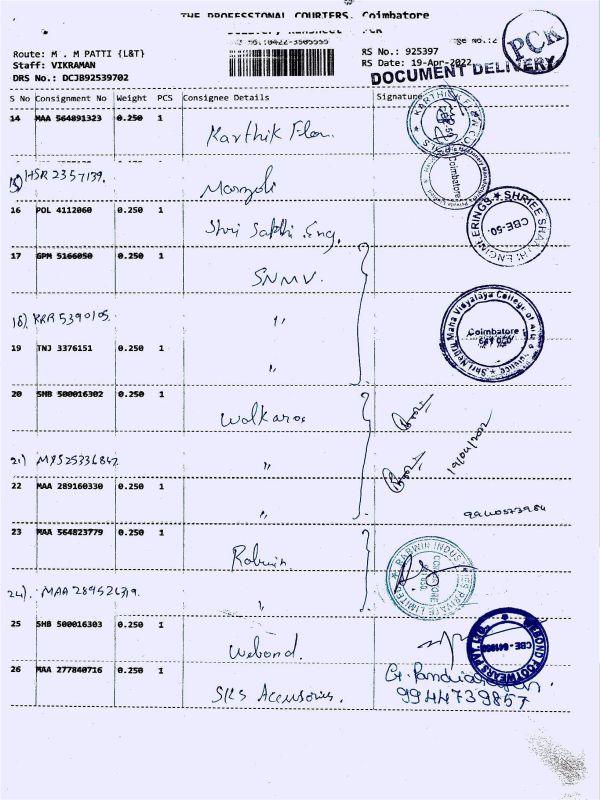 THE PROFESSIONAL COURIERS, Coimbatore
Delivery Runsheet PCK
Route: M . M PATTI {L&T}
RS No.: 925397
Staff: VIKRAMAN
RS Date: 19-Apr-2022
DRS No.: DCJB92539702
PCK
DOCUMENT DELIVERY
S No Consignment No Weight PCS Consignee Details Signature
14 MAA 564891323 0.250 1 Karthik Flon.
15) HSR 2357139.
Coimbatore
16 POL 4112060 0.250 1 Shri Sakthi Eng.
SHRIEE SHAKTHI ENGINEERINGS
CBE-50.
17 GPM 5166050 0.250 1 SNMV.
18). KRR 5390105. "
19 TNJ 3376151 0.250 1 "
Shri Nehru Maha Vidyalaya College of Arts & Science
Coimbatore
641 050
20 SHB 500016302 0.250 1 Walkaroo
21) MYS 25336842 "
19/04/2022
22 MAA 289160330 0.250 1 "
23 MAA 564823779 0.250 1 Rabwin
RABWIN INDUSTRIES PRIVATE LIMITED
24). MAA 289526319. "
25 SHB 500016303 0.250 1 Webond.
WEBOND FOOTWEARS PVT LTD
26 MAA 277840716 0.250 1 SKS Accessories.
G. Pandiarajan.
9944739857